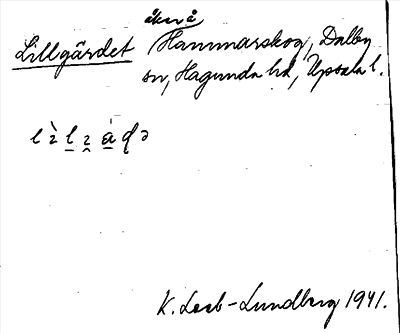 åker å
Lillgärdet Hammarskog, Dalby
sn, Hagunda hd, Upsala l.
K. Leeb-Lundberg 1941.